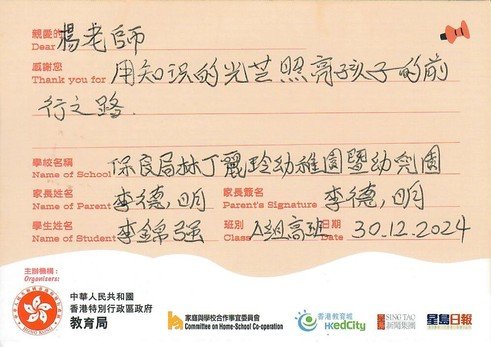 親愛的 楊老師
Dear
感謝您
Thank you for 用知识的光芒照亮孩子的前
行之路.
學校名稱
Name of School 保良局林丁麗玲幼稚園暨幼兒園
家長姓名 李德明 家長簽名 李德明
Name of Parent Parent's Signature
學生姓名 班別 日期
Name of Student 李錦强 Class A組高班 Date 30.12.2024
主辦機構:
Organisers:
中華人民共和國
香港特別行政區政府
教育局
家庭與學校合作事宜委員會
Committee on Home-School Co-operation
香港教育城
HKedCity
星島 SING TAO
新聞集團
星島日報